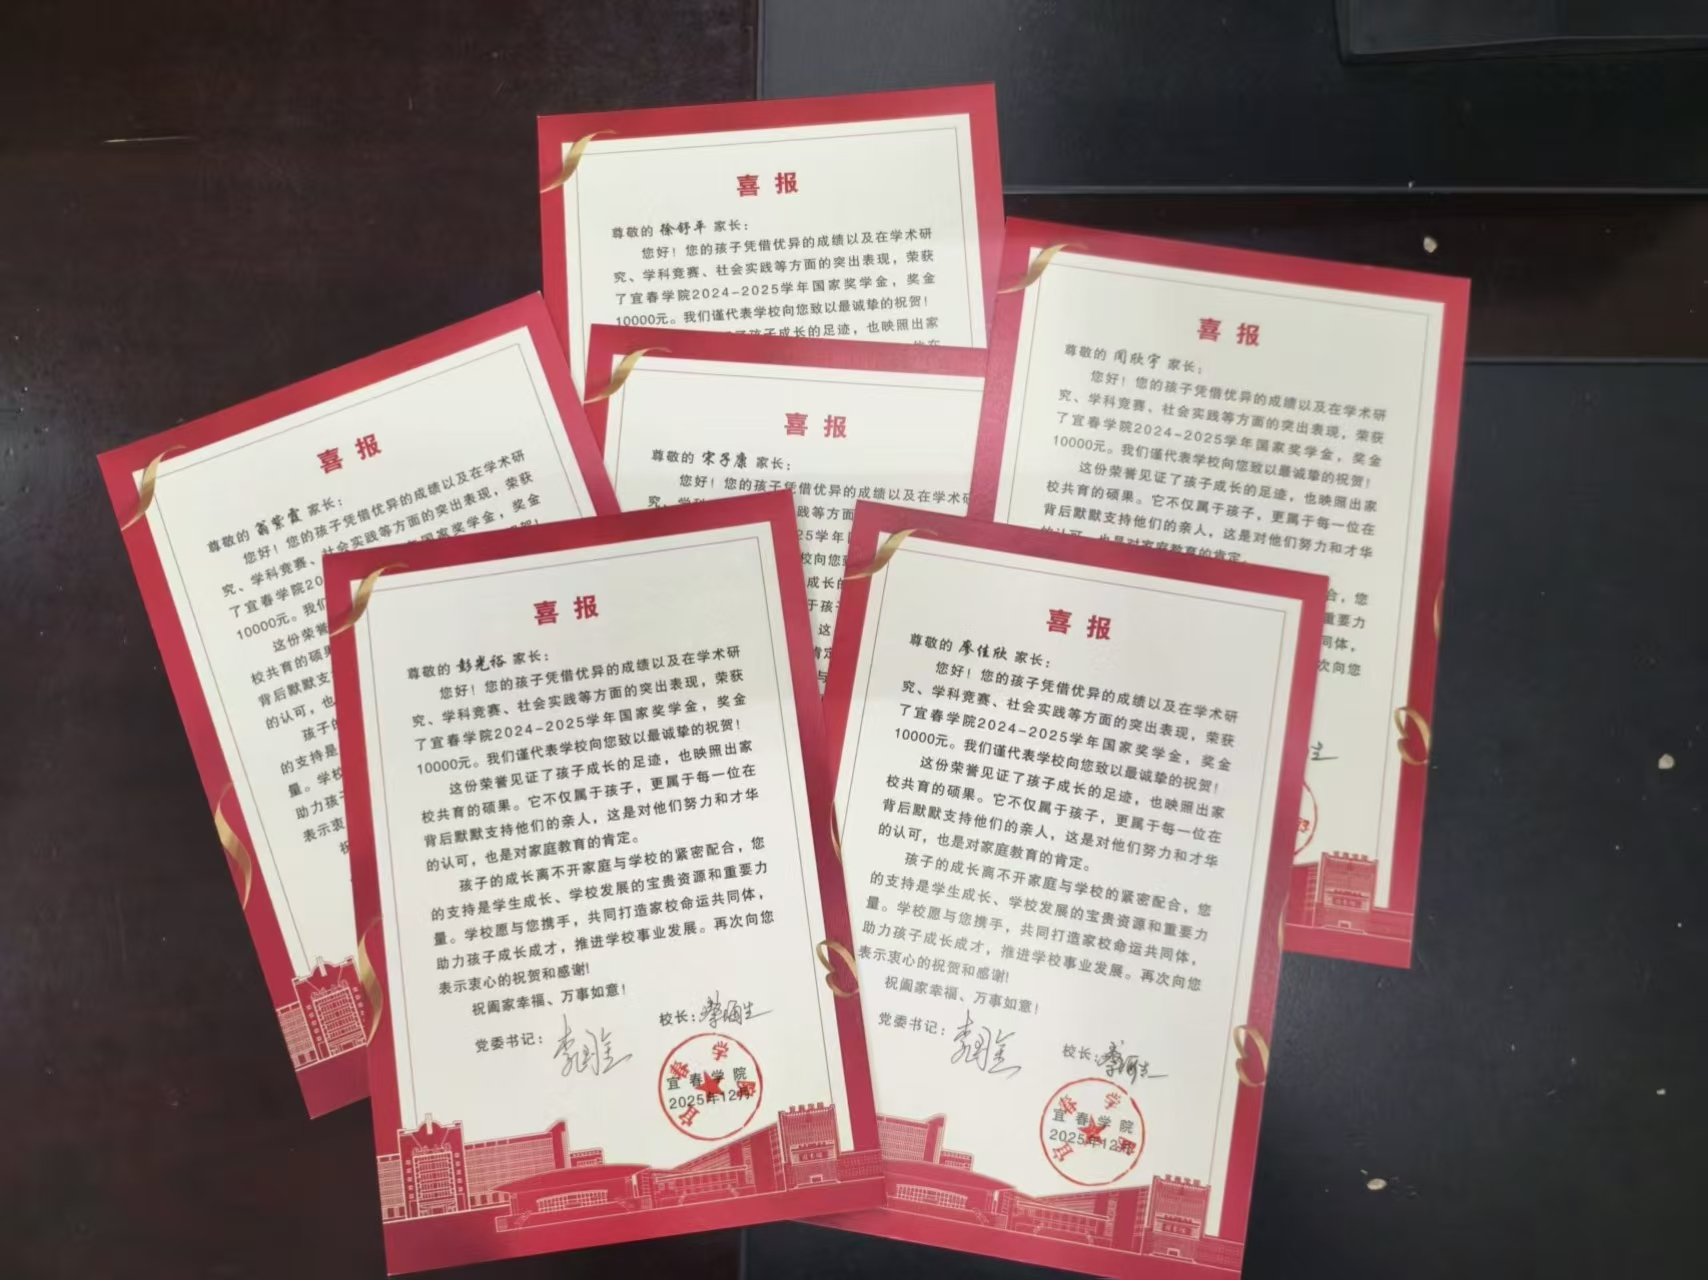 喜报
尊敬的 徐舒平 家长：
您好！您的孩子凭借优异的成绩以及在学术研
究、学科竞赛、社会实践等方面的突出表现，荣获
了宜春学院2024-2025学年国家奖学金，奖金
10000元。我们谨代表学校向您致以最诚挚的祝贺！
了孩子成长的足迹，也映照出家
喜报
尊敬的 闻欣宇 家长：
您好！您的孩子凭借优异的成绩以及在学术研
究、学科竞赛、社会实践等方面的突出表现，荣获
了宜春学院2024-2025学年国家奖学金，奖金
10000元。我们谨代表学校向您致以最诚挚的祝贺！
这份荣誉见证了孩子成长的足迹，也映照出家
校共育的硕果。它不仅属于孩子，更属于每一位在
背后默默支持他们的亲人，这是对他们努力和才华
的认可，也是对家庭教育的肯定。
合，您
重要力
同体，
次向您
喜报
尊敬的 宋子康 家长：
您好！您的孩子凭借优异的成绩以及在学术研
究、学科
践等方面
25学年国
校向您致
成长的
于孩子
这
肯定
与
喜报
尊敬的 翁紫霞 家长：
您好！您的孩子凭借优异的成绩以及在学术研
究、学科竞赛、社会实践等方面的突出表现，荣获
了宜春学院20 年国家奖学金，奖金
10000元。我们 祝贺！
这份荣誉
校共育的硕果
背后默默支持
的认可，也
孩子的
的支持是
量。学校
助力孩子
表示衷
祝
喜报
尊敬的 彭光裕 家长：
您好！您的孩子凭借优异的成绩以及在学术研
究、学科竞赛、社会实践等方面的突出表现，荣获
了宜春学院2024-2025学年国家奖学金，奖金
10000元。我们谨代表学校向您致以最诚挚的祝贺！
这份荣誉见证了孩子成长的足迹，也映照出家
校共育的硕果。它不仅属于孩子，更属于每一位在
背后默默支持他们的亲人，这是对他们努力和才华
的认可，也是对家庭教育的肯定。
孩子的成长离不开家庭与学校的紧密配合，您
的支持是学生成长、学校发展的宝贵资源和重要力
量。学校愿与您携手，共同打造家校命运共同体，
助力孩子成长成才，推进学校事业发展。再次向您
表示衷心的祝贺和感谢！
祝阖家幸福、万事如意！
党委书记：
校长：
宜春学院
宜春学院
2025年12月
喜报
尊敬的 廖佳欣 家长：
您好！您的孩子凭借优异的成绩以及在学术研
究、学科竞赛、社会实践等方面的突出表现，荣获
了宜春学院2024-2025学年国家奖学金，奖金
10000元。我们谨代表学校向您致以最诚挚的祝贺！
这份荣誉见证了孩子成长的足迹，也映照出家
校共育的硕果。它不仅属于孩子，更属于每一位在
背后默默支持他们的亲人，这是对他们努力和才华
的认可，也是对家庭教育的肯定。
孩子的成长离不开家庭与学校的紧密配合，您
的支持是学生成长、学校发展的宝贵资源和重要力
量。学校愿与您携手，共同打造家校命运共同体，
助力孩子成长成才，推进学校事业发展。再次向您
表示衷心的祝贺和感谢！
祝阖家幸福、万事如意！
党委书记：
校长：
宜春学院
宜春学院
2025年12月